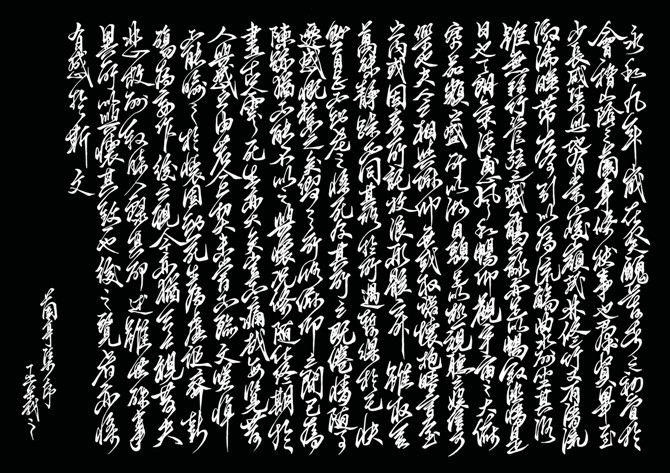 永和九年歲在癸丑暮春之初會於
會稽山陰之蘭亭脩禊事也群賢畢至
少長咸集此地有崇山峻領茂林脩竹又有清流
激湍映帶左右引以為流觴曲水列坐其次
雖無絲竹管弦之盛一觴一詠亦足以暢敘幽情是
日也天朗氣清惠風和暢仰觀宇宙之大俯
察品類之盛所以遊目騁懷足以極視聽之娛信可
樂也夫人之相與俯仰一世或取諸懷抱晤言一室
之內或因寄所託放浪形骸之外雖取舍
萬殊靜躁不同當其欣於所遇暫得於己快
然自足不知老之將至及其所之既倦情隨事
遷感慨係之矣向之所欣俯仰之間已為
陳跡猶不能不以之興懷況脩短隨化終期於
盡古人云死生亦大矣豈不痛哉每覽昔
人興感之由若合一契未嘗不臨文嗟悼
不能喻之於懷固知一死生為虛誕齊彭
殤為妄作後之視今亦猶今之視昔夫
悲故列敘時人錄其所述雖世殊事
異所以興懷其致一也後之覽者亦將
有感於斯文
蘭亭集序
王羲之